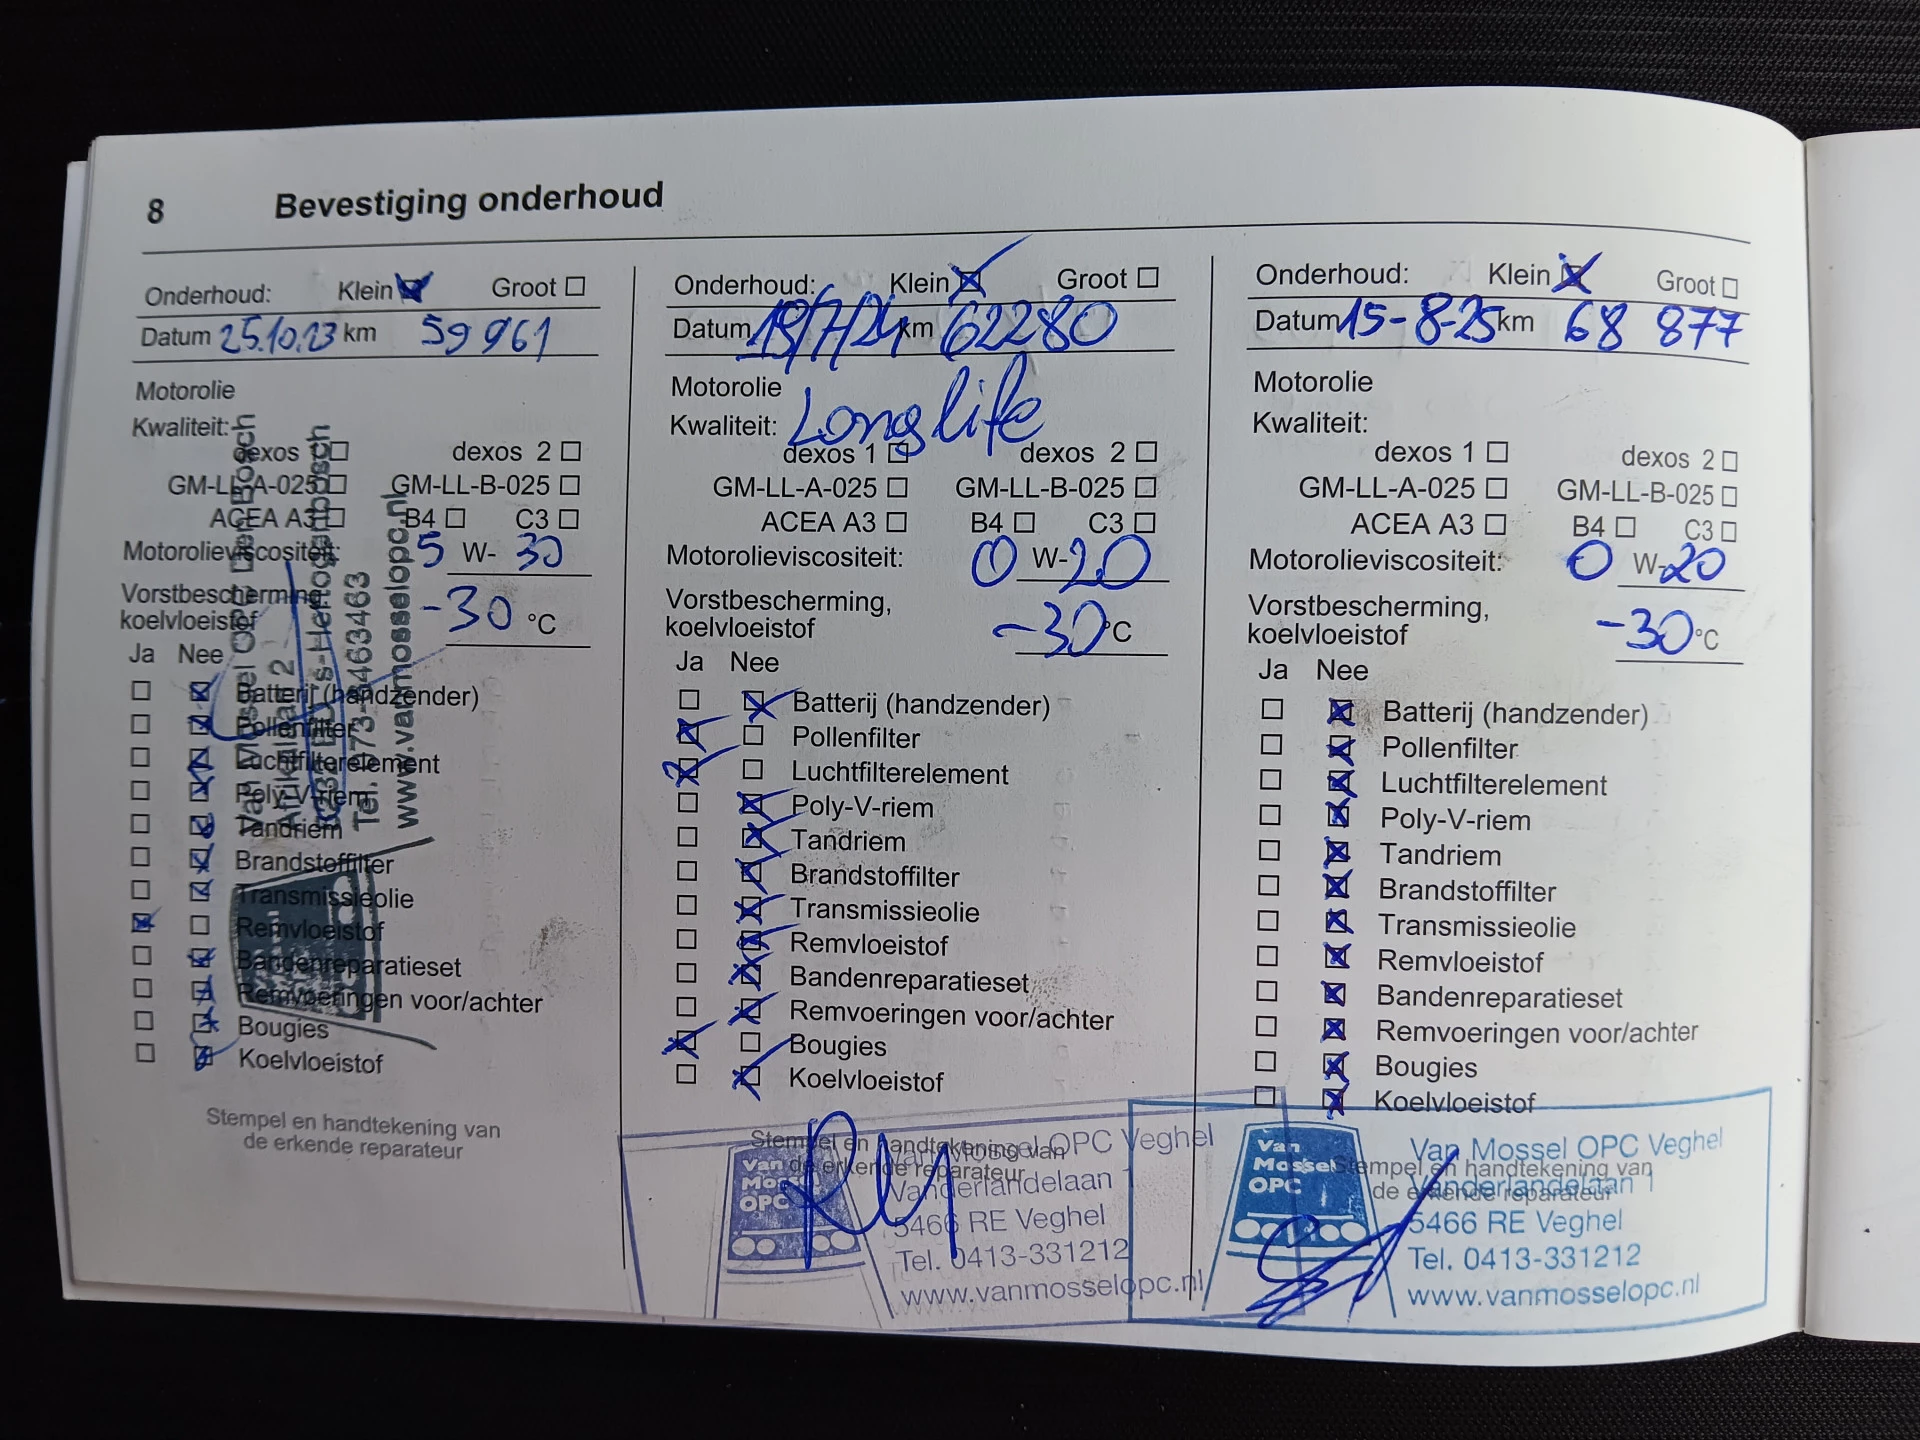 8 Bevestiging onderhoud
Onderhoud: Klein Groot
Datum 25.10.23 km 59 961
Motorolie
Kwaliteit:
dexos 1 dexos 2
GM-LL-A-025 GM-LL-B-025
ACEA A3 B4 C3
Motorolieviscositeit: 5 W- 30
Vorstbescherming,
koelvloeistof -30 °C
Ja Nee
Batterij (handzender)
Pollenfilter
Luchtfilterelement
Poly-V-riem
Tandriem
Brandstoffilter
Transmissieolie
Remvloeistof
Bandenreparatieset
Remvoeringen voor/achter
Bougies
Koelvloeistof
Van Mossel OPC Den Bosch
2
's-Hertogenbosch
Tel. 073-6463463
www.vanmosselopc.nl
Stempel en handtekening van
de erkende reparateur
Onderhoud: Klein Groot
Datum 19/7/24 km 62280
Motorolie
Kwaliteit: Longlife
dexos 1 dexos 2
GM-LL-A-025 GM-LL-B-025
ACEA A3 B4 C3
Motorolieviscositeit: 0 W-20
Vorstbescherming,
koelvloeistof -30 °C
Ja Nee
Batterij (handzender)
Pollenfilter
Luchtfilterelement
Poly-V-riem
Tandriem
Brandstoffilter
Transmissieolie
Remvloeistof
Bandenreparatieset
Remvoeringen voor/achter
Bougies
Koelvloeistof
Stempel en handtekening van
de erkende reparateur
Van
Mossel
OPC
Van Mossel OPC Veghel
Vanderlandelaan 1
5466 RE Veghel
Tel. 0413-331212
www.vanmosselopc.nl
Onderhoud: Klein Groot
Datum 15-8-25 km 68 877
Motorolie
Kwaliteit:
dexos 1 dexos 2
GM-LL-A-025 GM-LL-B-025
ACEA A3 B4 C3
Motorolieviscositeit: 0 W-20
Vorstbescherming,
koelvloeistof -30 °C
Ja Nee
Batterij (handzender)
Pollenfilter
Luchtfilterelement
Poly-V-riem
Tandriem
Brandstoffilter
Transmissieolie
Remvloeistof
Bandenreparatieset
Remvoeringen voor/achter
Bougies
Koelvloeistof
Stempel en handtekening van
de erkende reparateur
Van
Mossel
OPC
Van Mossel OPC Veghel
Vanderlandelaan 1
5466 RE Veghel
Tel. 0413-331212
www.vanmosselopc.nl